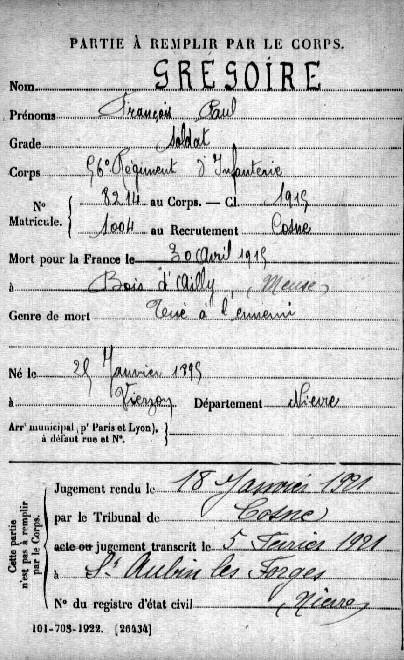 PARTIE À REMPLIR PAR LE CORPS.
Nom GRÉGOIRE
Prénoms François Paul
Grade Soldat
Corps 56e Régiment d'Infanterie
N° Matricule. { 8214 au Corps. — Cl. 1915
1004 au Recrutement Cosne
Mort pour la France le 30 Avril 1915
à Bois d'Ailly, (Meuse)
Genre de mort Tué à l'ennemi
Né le 25 Janvier 1895
à Vierzon Département Nièvre
Arrt municipal (pr Paris et Lyon), à défaut rue et N°.
Cette partie n'est pas à remplir par le Corps.
Jugement rendu le 18 Janvier 1921
par le Tribunal de Cosne
acte ou jugement transcrit le 5 Février 1921
à St Aubin les Forges
N° du registre d'état civil Nièvre
101-708-1922. [26434]